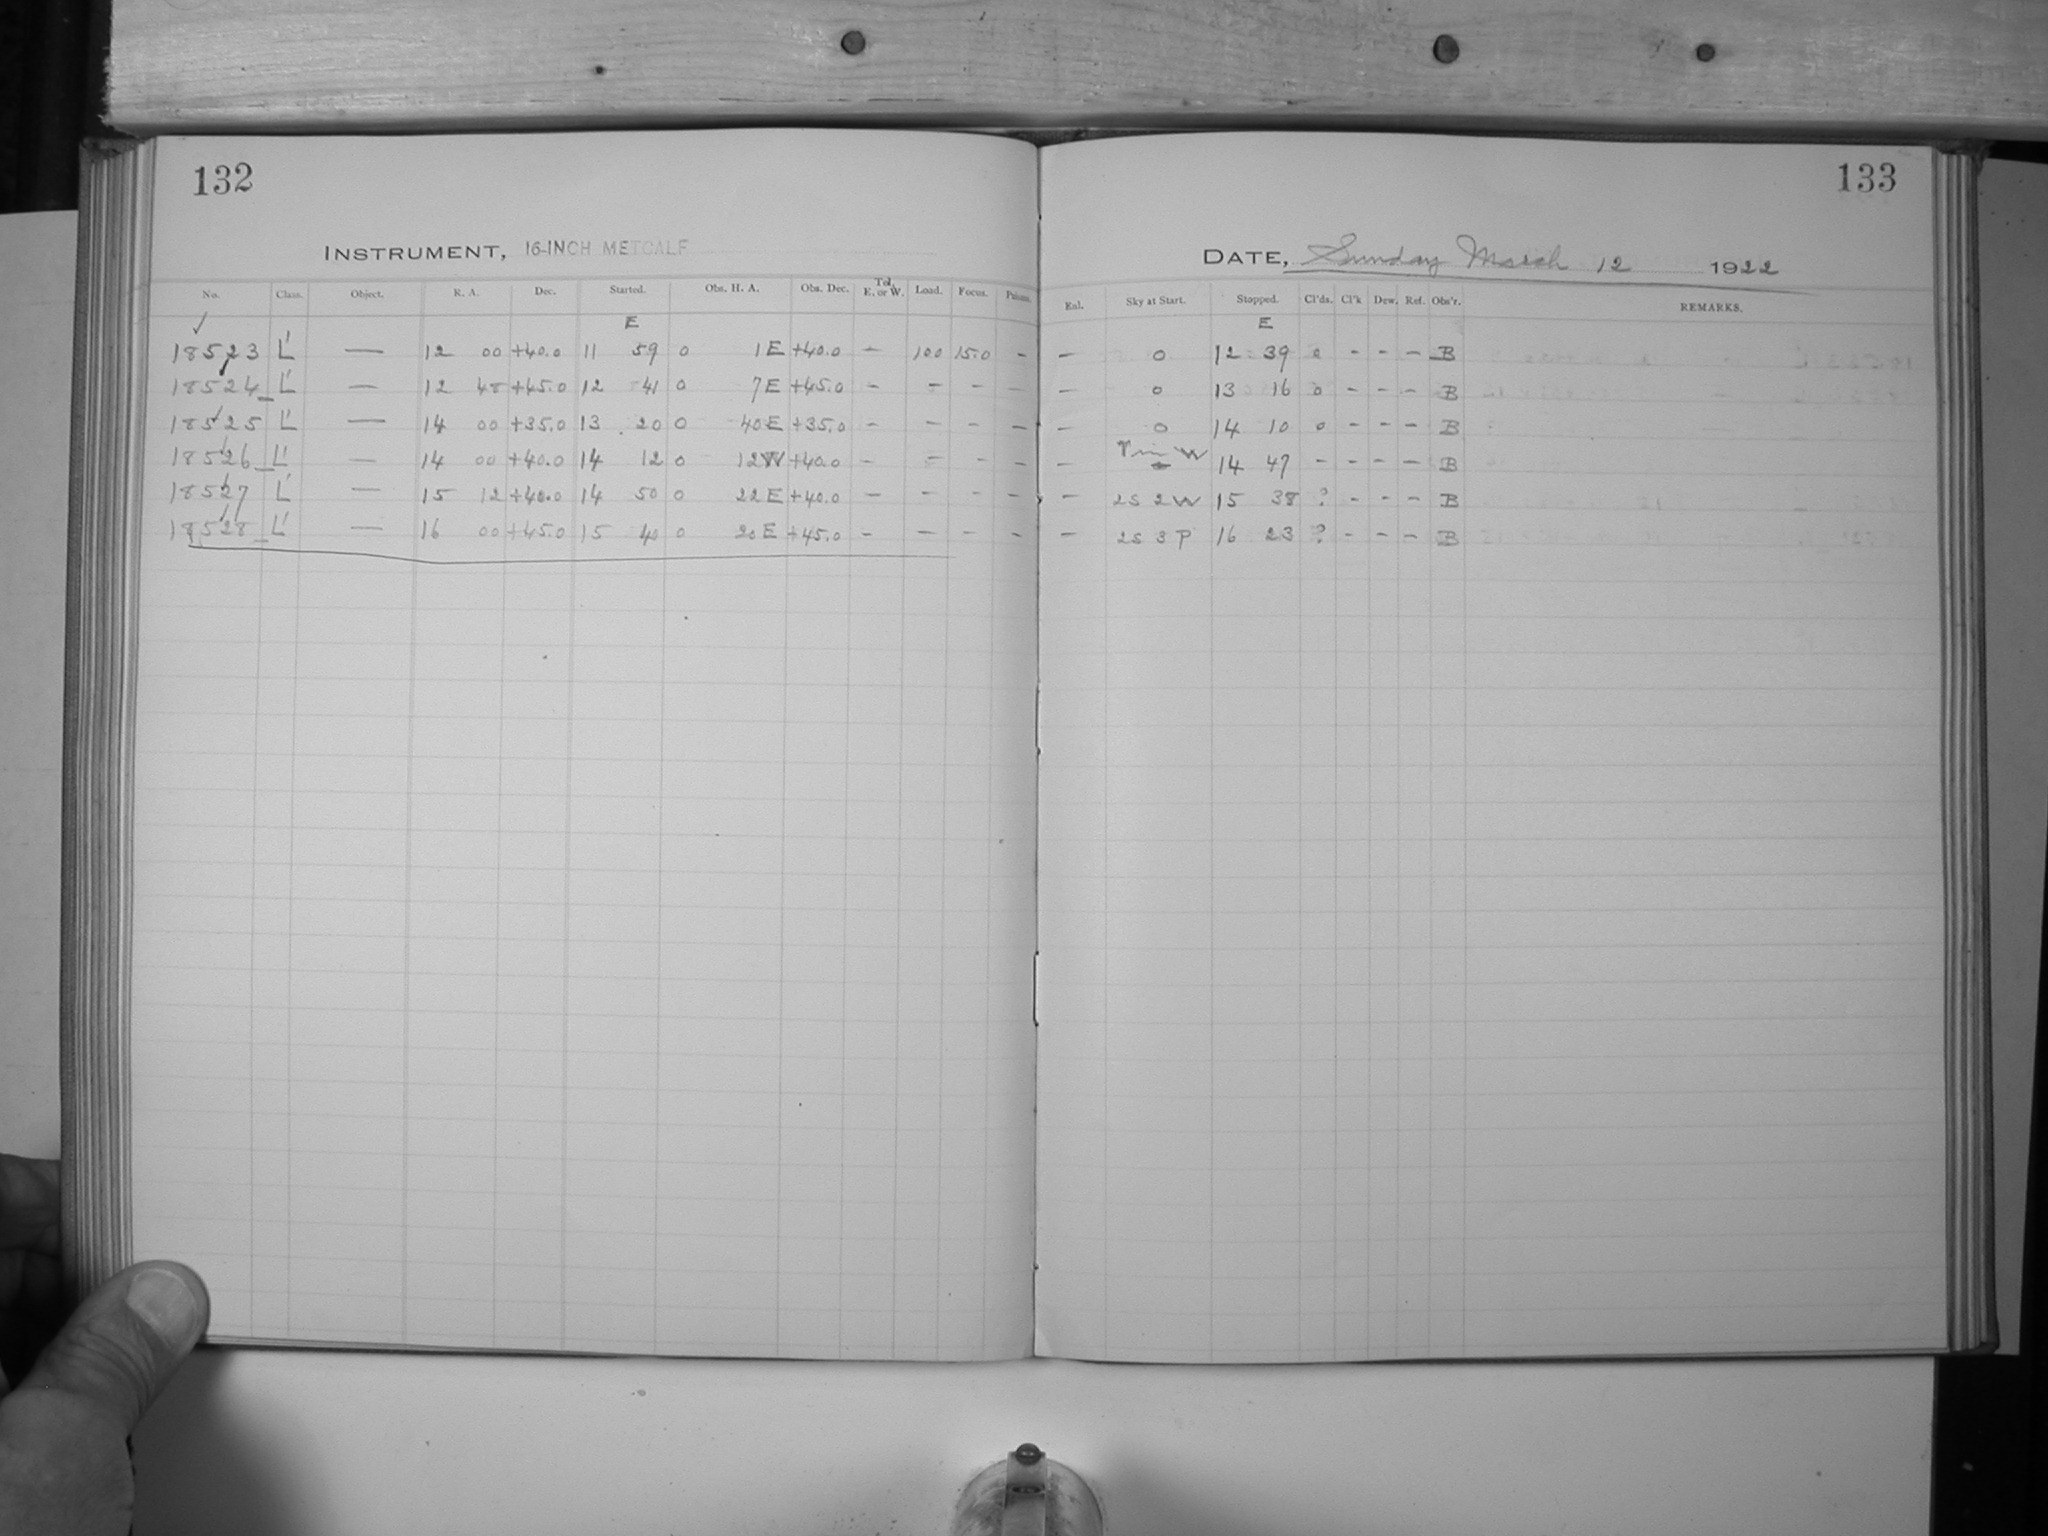 132
133
INSTRUMENT, 16-INCH METCALF
DATE, Sunday March 12 1922
No. Class. Object. R. A. Dec. Started. Obs. H. A. Obs. Dec. Tel. E. or W. Load. Focus. Prisms. Enl. Sky at Start. Stopped. Cl'ds. Cl'k Dew. Ref. Obs'r. REMARKS.
✓ E E
18523 L' — 12 00 +40.0 11 59 0 1 E +40.0 - 100 15.0 - - 0 12 39 0 - - - B
18524 L' — 12 48 +45.0 12 41 0 7 E +45.0 - - - - - 0 13 16 0 - - - B
18525 L' — 14 00 +35.0 13 20 0 40 E +35.0 - - - - - 0 14 10 0 - - - B
18526 L' — 14 00 +40.0 14 12 0 12 W +40.0 - - - - - in W 14 47 - - - - B
18527 L' — 15 12 +40.0 14 50 0 22 E +40.0 - - - - - 2S 2 W 15 38 ? - - - B
18528 L' — 16 00 +45.0 15 40 0 20 E +45.0 - - - - - 2S 3 P 16 23 ? - - - B